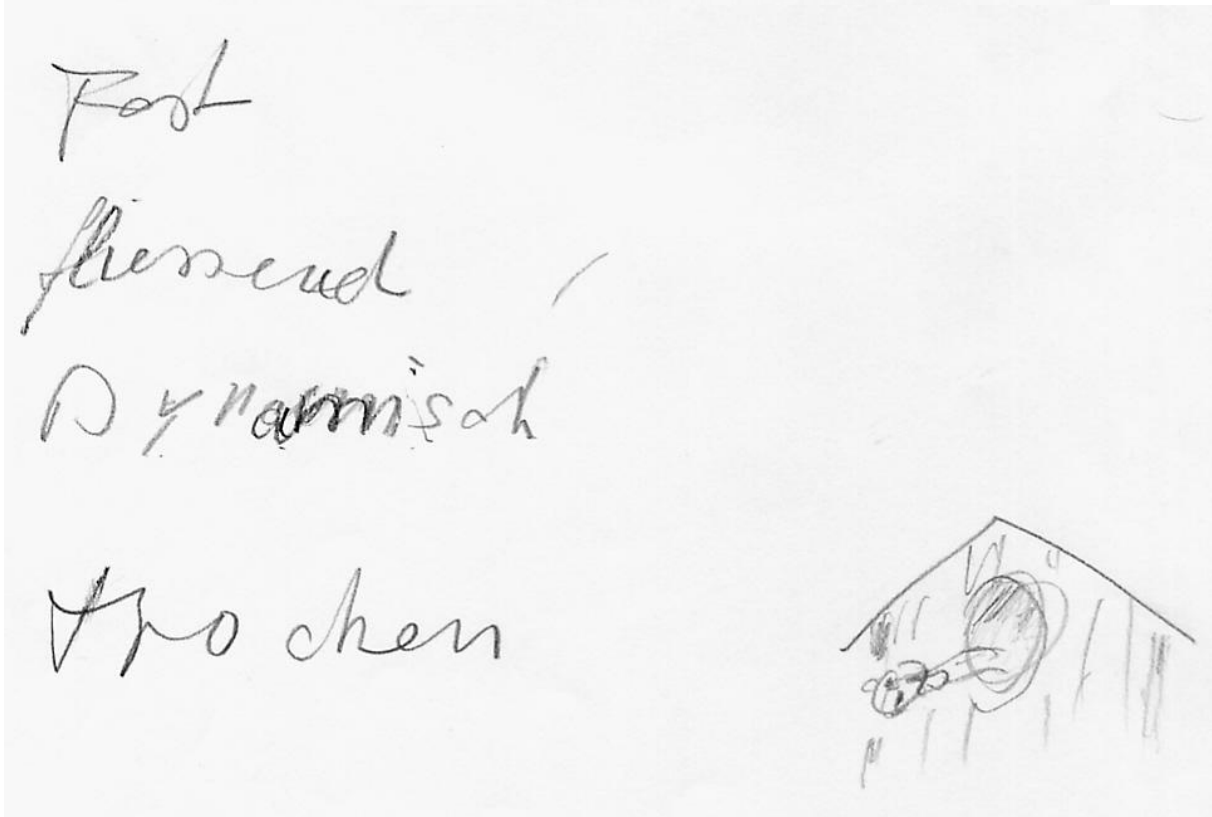 Fast
fliessend
Dynamisch
trocken